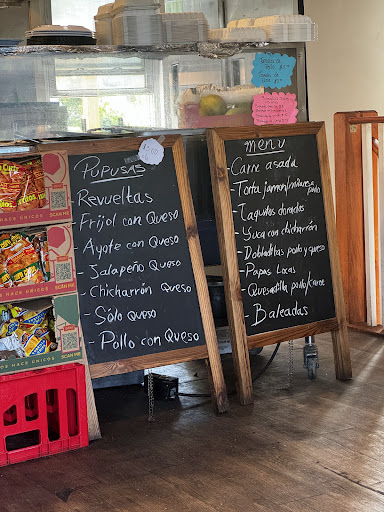 PUPUSAS
- Revueltas
- Frijol con Queso
- Ayote con Queso
- Jalapeño Queso
- Chicharrón Queso
- Sólo Queso
- Pollo con Queso
menu
- Carne asada
- Taquitos dorados
- Yuca con chicharrón
- Dobladitas pollo y queso
- Papas Locas
- Quesadilla pollo/carne
- Baleadas
SCAN ME
SCAN ME
SCAN ME